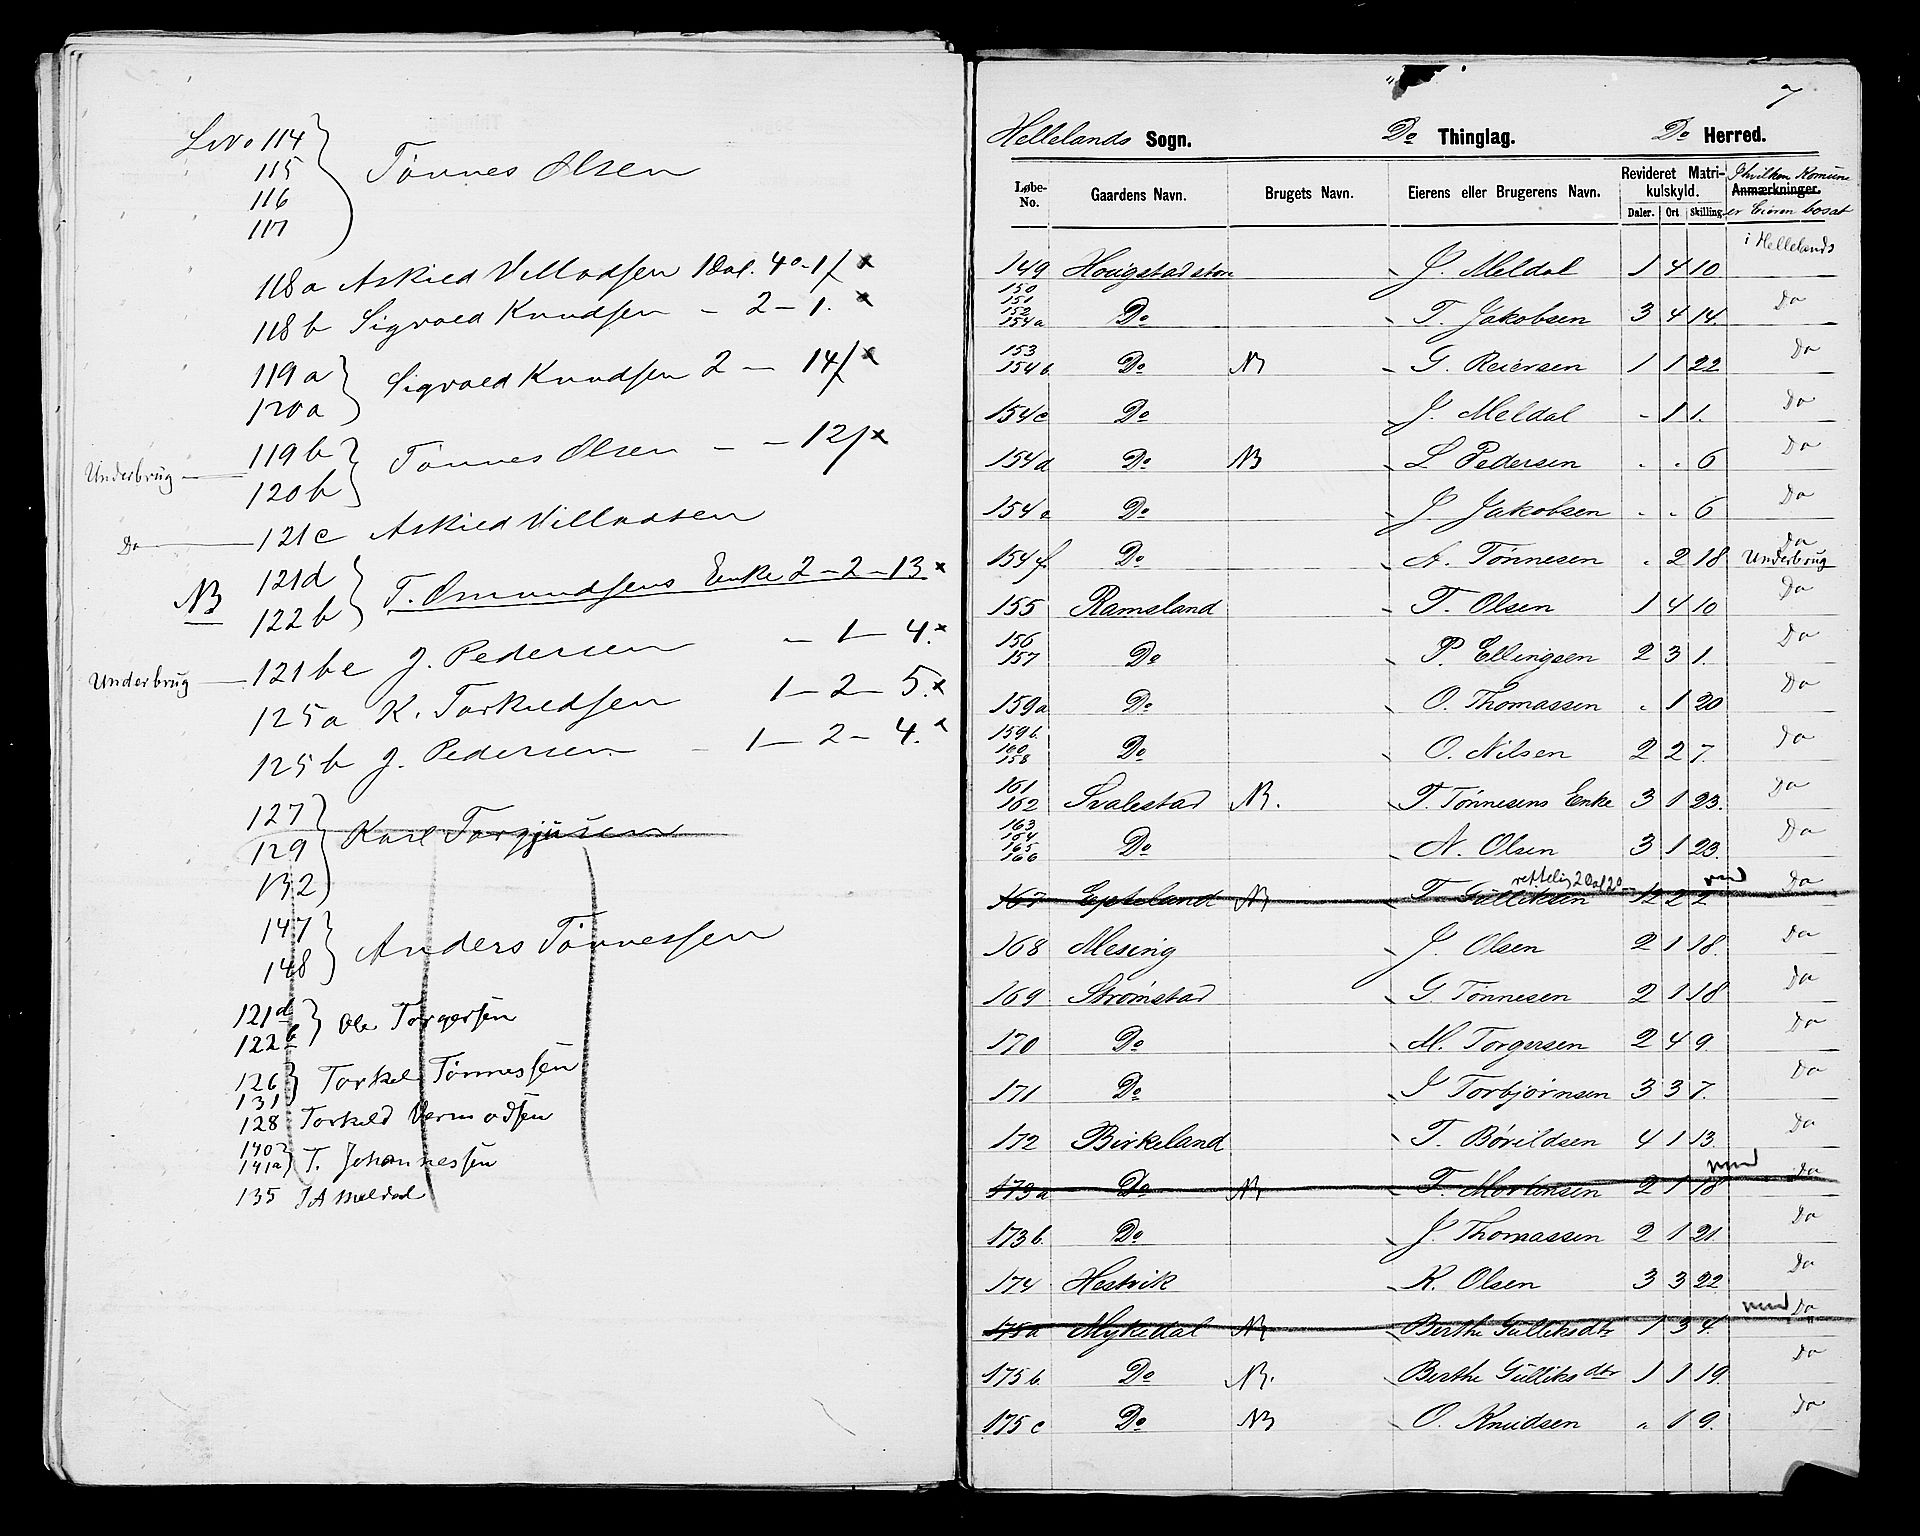 LNo 114
115
116
117
Tönnes Olsen
118a Askied Villadsen 1 Dal. 4 o. 1 f x
118b Sigvald Knudsen - 2 - 1. x
119a
120a
Sigvald Knudsen 2 - 14 f x
Underbrug
119b
120b
Tönnes Olsen - - 12 f x
Do 121c Askied Villadsen
NB
121d
122b
T. Omundsens Enke 2 - 2 - 13 x
121be J. Pedersen - 1 - 4. x
Underbrug
125a K. Torkildsen 1 - 2 - 5. x
125b J. Pedersen - 1 - 2 - 4. x
127
129
132
Karl Torgjusen
147
148
Anders Tönnessen
121d
122b
Ole Torgersen
126
131
Torkel Tönnessen
128 Torkild Vermodsen
140
141a
T. Johannessen
135 J A Meldal
7
Hellelands Sogn. Do Thinglag. Do Herred.
Løbe-No. Gaardens Navn. Brugets Navn. Eierens eller Brugerens Navn. Revideret Matrikulskyld. Daler. Ort Skilling. Anmærkninger. I hvilken Komune er Eieren bosat
149 Hovigstad store J. Meldal 1 4 10 i Hellelands
150 151 152 154a Do T. Jakobsen 3 4 14. Do
153 154b. Do NB G. Reiersen 1 1 22 Do
154c Do J. Meldal - 1 1. Do
154d Do NB L. Pedersen " " 6 Do
154e Do J. Jakobsen " " 6 Do
154f. Do A. Tönnesen " 2 18 Do Underbrug
155 Ramsland T. Olsen 1 4 10 Do
156 157 Do P. Ellingsen 2 3 1. Do
159a Do O. Thomassen " 1 20 Do
159b. 160 158 Do O. Nilsen 2 2 7. Do
161 162 Svalestad NB. T. Tönnesens Enke 3 1 23. Do
163 164 165 166 Do N. Olsen 3 1 23. Do
rettelig 2 Dal 2 o
167 Epteland NB T. Gulliksen 12 2 2 Do
168 Mesing J. Olsen 2 1 18. Do
169 Strömstad G. Tönnesen 2 1 18 Do
170 Do M. Torgersen 2 4 9. Do
171 Do I Torbjörnsen 3 3 7. Do
172 Birkeland T. Börildsen 4 1 13. Do
173a Do NB T. Mortensen 2 1 18 Do
173b. Do J. Thomassen 2 1 21 Do
174 Hestvik K. Olsen 3 3 22 Do
175a Mykedal NB Berthe Gulliksdtr 1 3 4. Do
175b. Do NB. Berthe Gulliksdtr 1 1 19. Do
175c Do NB O. Knudsen " 1 9. Do